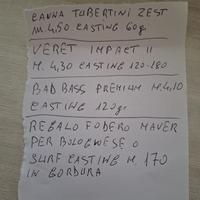 CANNA TUBERTINI ZEST
M. 4,50 CASTING 60g.
VERET IMPACT II
M. 4,30 CASTING 120-180
BAD BASS PREMIUM M. 4,10
CASTING 120gr
REGALO FODERO MAVER
PER BOLOGNESE O
SURF CASTING M. 170
IN CORDURA